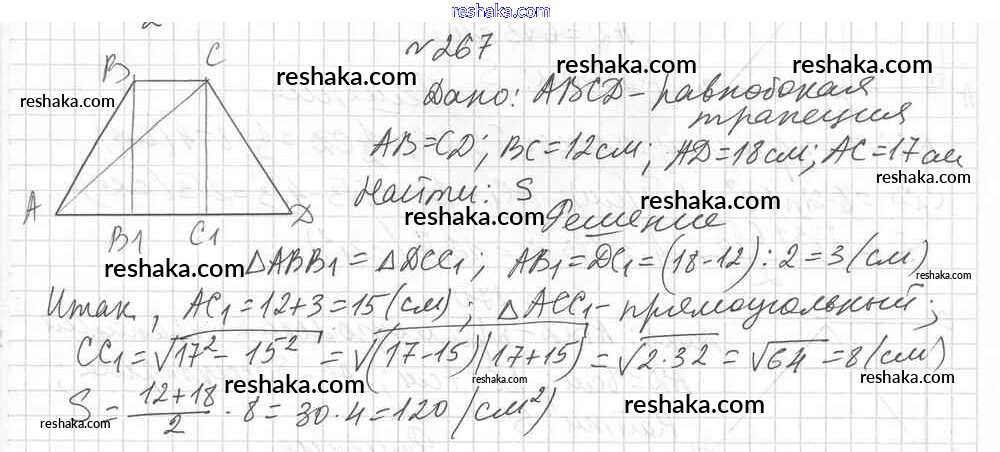 reshaka.com
№267
B C
reshaka.com reshaka.com
reshaka.com
Дано: ABCD – равнобокая
трапеция
AB = CD; BC = 12 см; AD = 18 см; AC = 17 см
reshaka.com
Найти: S
reshaka.com
A D
reshaka.com
Решение
B1 C1
reshaka.com
△ABB1 = △DCC1; AB1 = DC1 = (18 - 12) : 2 = 3 (см)
reshaka.com
Итак, AC1 = 12 + 3 = 15 (см); △ACC1 – прямоугольный;
CC1 = √17² - 15² = √(17-15)(17+15) = √2·32 = √64 = 8 (см)
reshaka.com reshaka.com reshaka.com
S = 12+18 / 2 · 8 = 30 · 4 = 120 (см²)
reshaka.com
reshaka.com